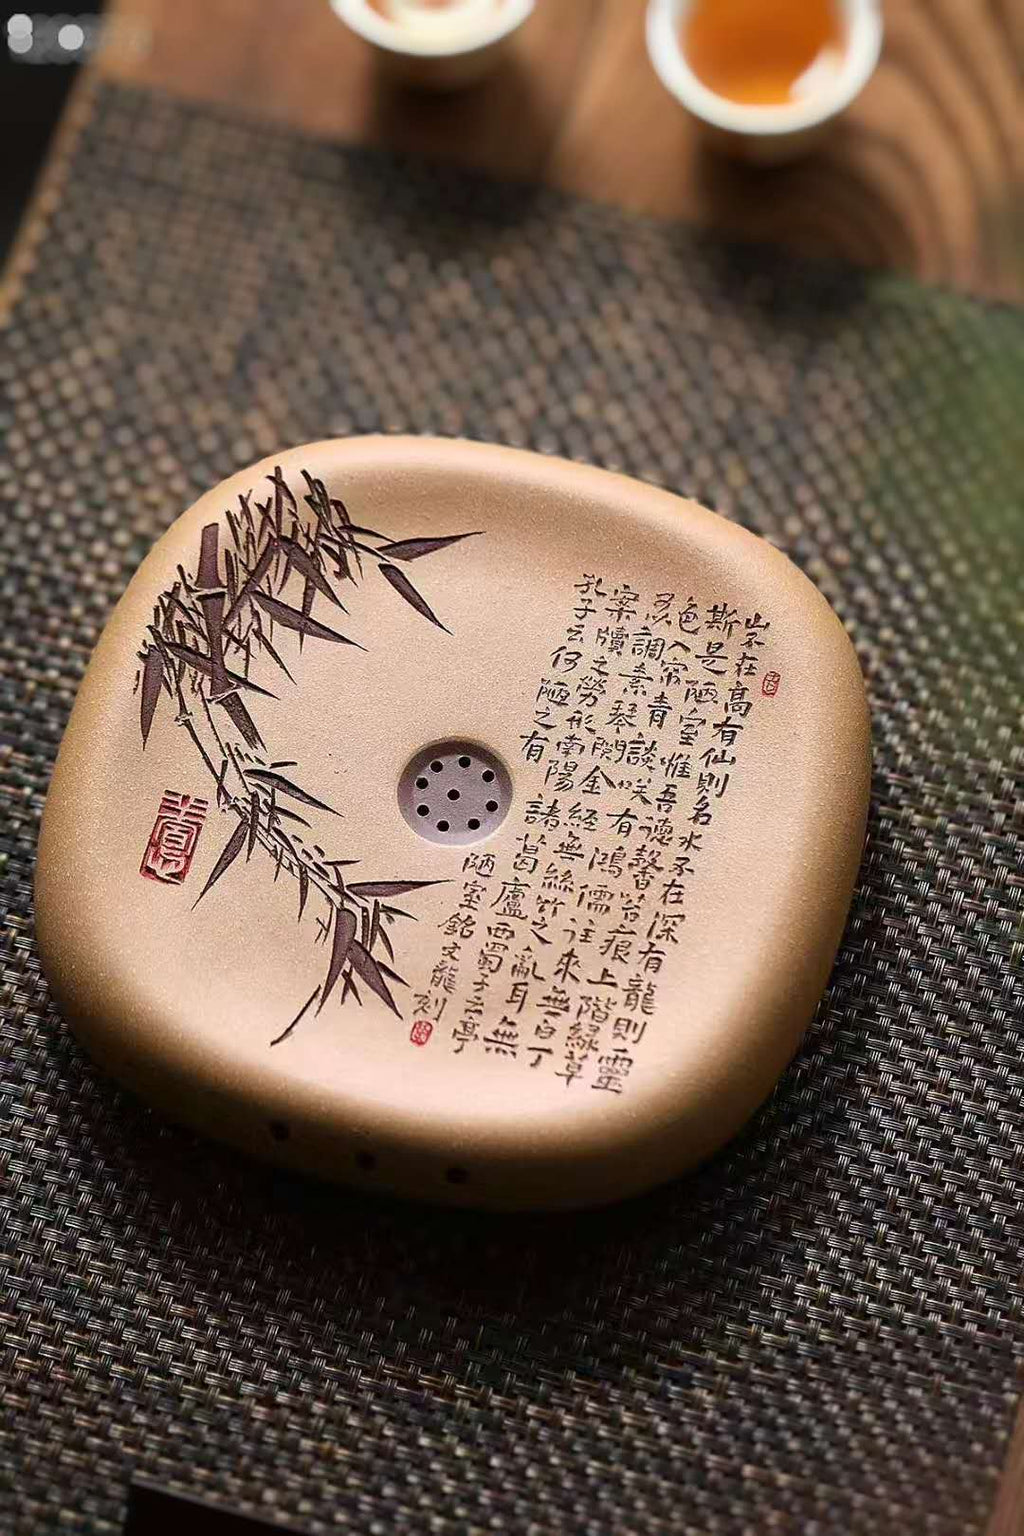 山不在高有仙則名水不在深有龍則靈
斯是陋室惟吾德馨苔痕上階綠草
色入帘青談咲有鴻儒往來無白丁
可以調素琴閱金經無絲竹之亂耳無
案牘之勞形南陽諸葛廬西蜀子云亭
孔子云何陋之有
陋室銘文龍刻